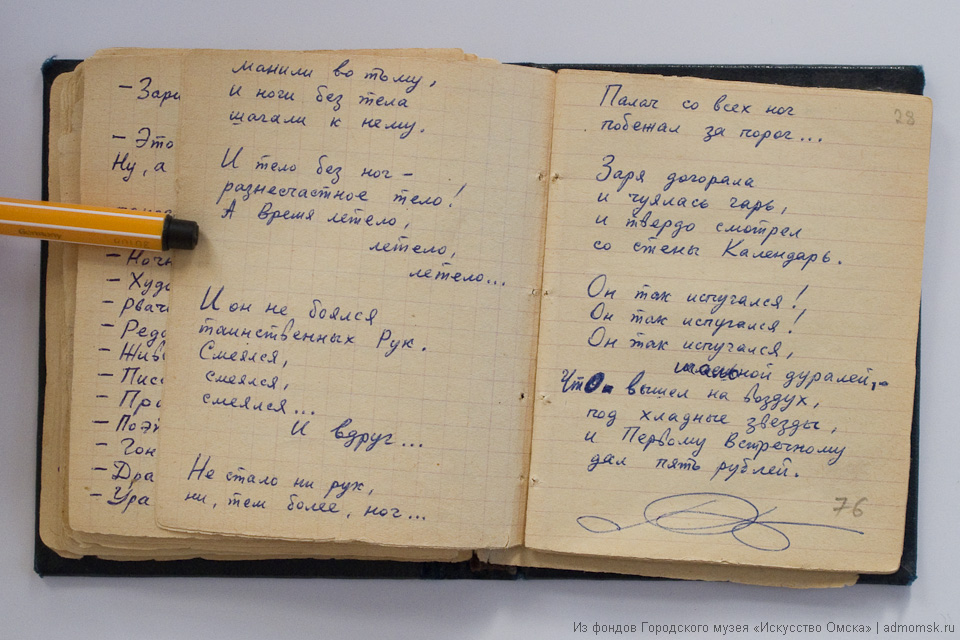 — Зари
— Это
Ну, а
— Худ
— рвач
— Реда
— Жив
— Пис
— Про
— Поэ
Гон
— Дра
— Ура
манили во тьму,
и ноги без тела
шагали к нему.
И тело без ног –
разнесчастное тело!
А время летело,
летело,
летело...
И он не боялся
таинственных Рук.
Смеялся,
смеялся,
смеялся...
И вдруг...
Не стало ни рук,
ни, тем более, ног...
28
Палач со всех ног
побежал за порог...
Заря догорала
и чуялась гарь,
и твердо смотрел
со стены Календарь.
Он так испугался!
Он так испугался!
Он так испугался,
ной дуралей,–
Что вышел на воздух,
под хладные звезды,
и Первому Встречному
дал пять рублей.
76
Из фондов Городского музея «Искусство Омска» | admomsk.ru